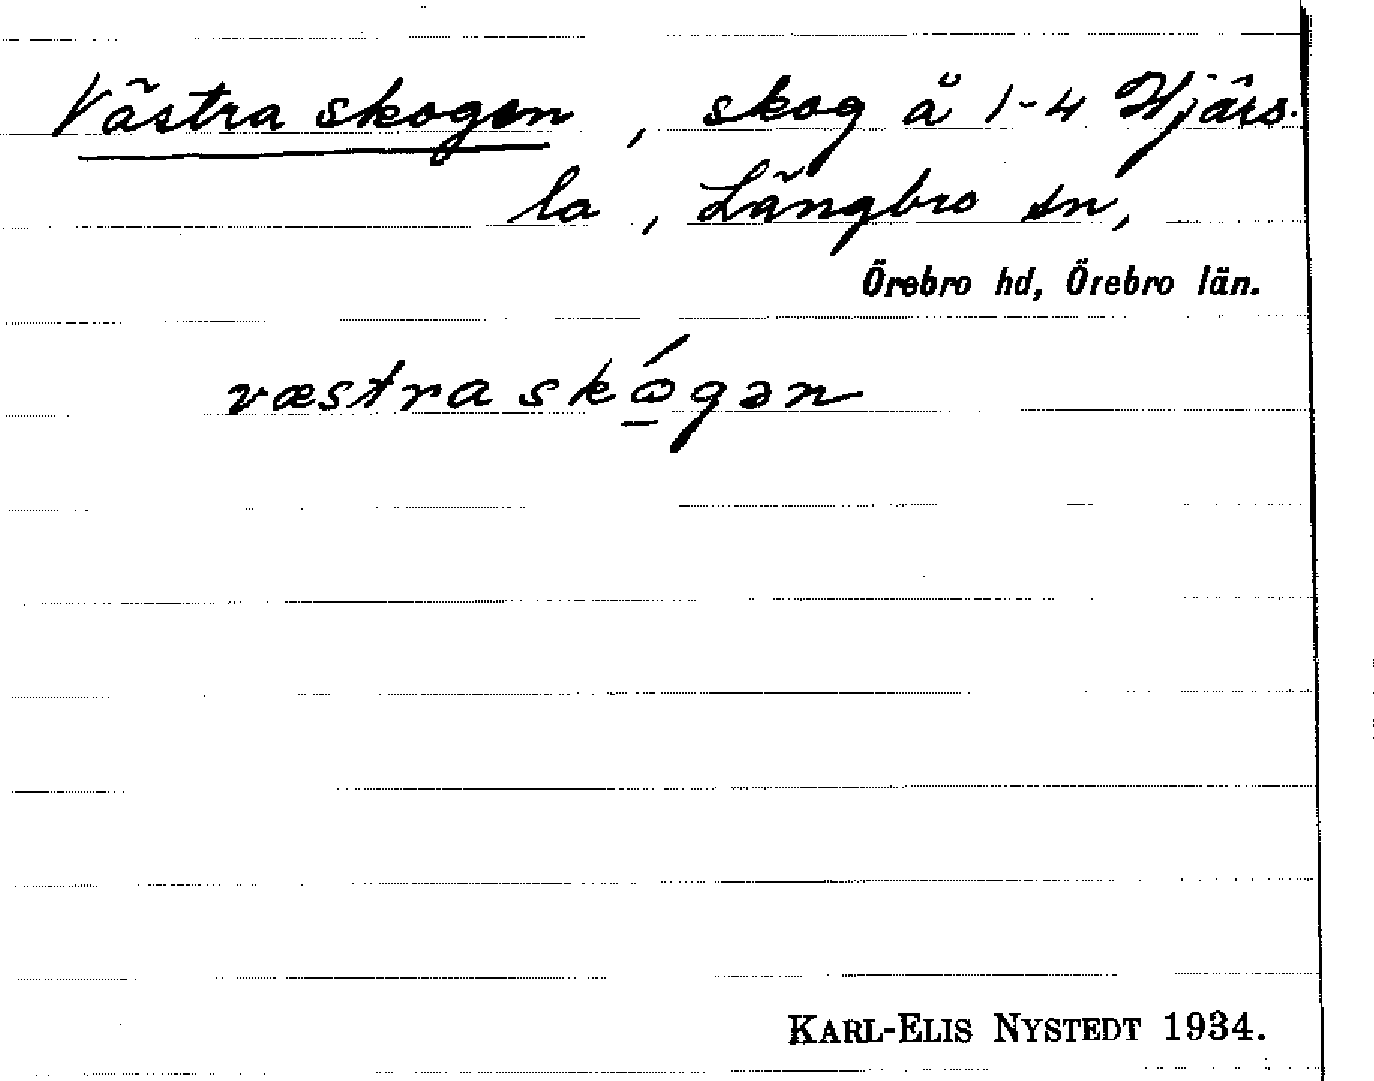 Västra skogen, skog å 1-4 Hjärs-
la, Längbro sn,
Örebro hd, Örebro län.
væstra skógən
KARL-ELIS NYSTEDT 1934.